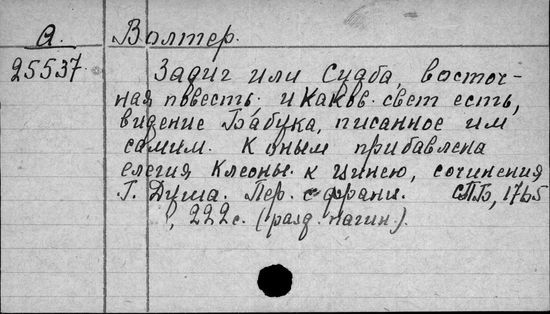 А. Волтер.
25537 Задиг или Судба, восточ-
ная повесть. и Каков. свет есть,
видение Бабука, писанное им
самим. К оным прибавлена
елегия Клеоны. к Цинею, сочинения
Г. Дюша. Пер. с франц. СПБ, 1765
, 222 с. (разд. пагин.).